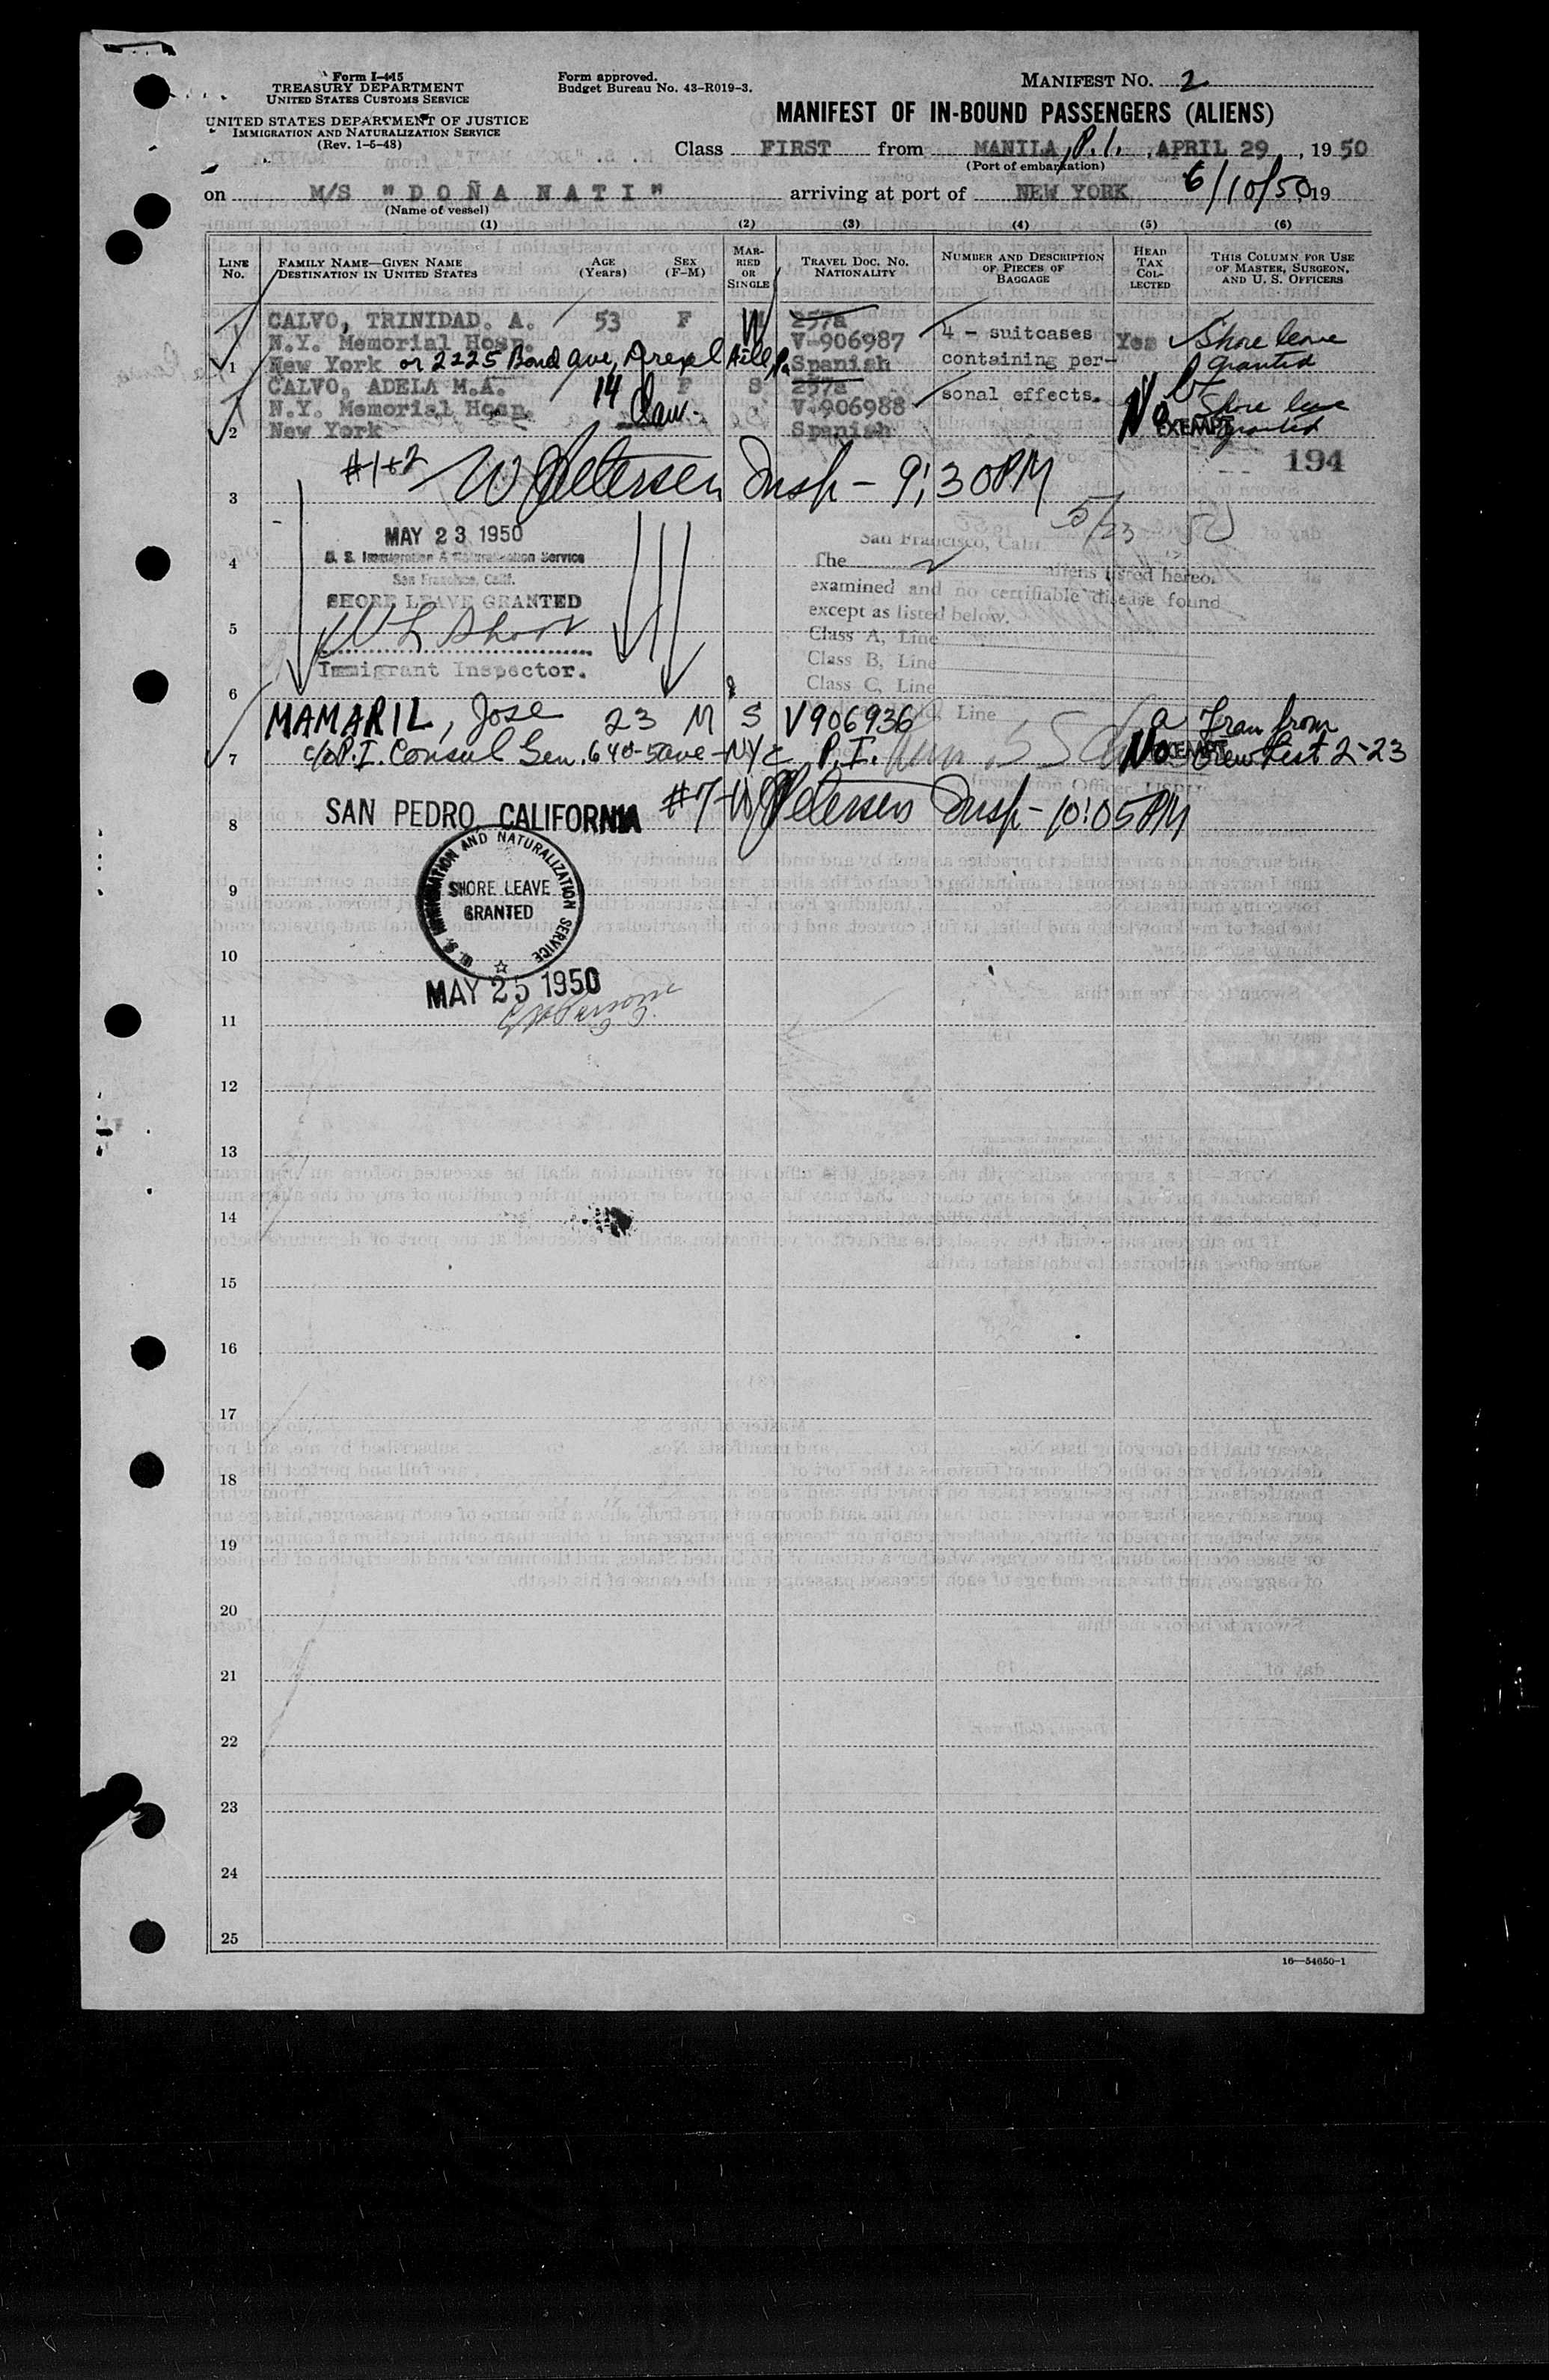 Form I-415
TREASURY DEPARTMENT
UNITED STATES CUSTOMS SERVICE
UNITED STATES DEPARTMENT OF JUSTICE
IMMIGRATION AND NATURALIZATION SERVICE
(Rev. 1-5-48)
Form approved.
Budget Bureau No. 43-R019-3.
MANIFEST NO. 2
MANIFEST OF IN-BOUND PASSENGERS (ALIENS)
Class FIRST from MANILA, P.I., APRIL 29, 1950
(Port of embarkation)
on M/S "DOÑA NATI" arriving at port of NEW YORK 6/10/50, 19
(Name of vessel)
(1) (2) (3) (4) (5) (6)
LINE No. FAMILY NAME—GIVEN NAME DESTINATION IN UNITED STATES AGE (Years) SEX (F-M) MARRIED OR SINGLE TRAVEL DOC. NO. NATIONALITY NUMBER AND DESCRIPTION OF PIECES OF BAGGAGE HEAD TAX COLLECTED THIS COLUMN FOR USE OF MASTER, SURGEON, AND U. S. OFFICERS
CALVO, TRINIDAD. A. 53 F W 257a
N.Y. Memorial Hosp. V-906987 4 - suitcases Yes Shore leave
1 New York or 2225 Bond Ave, Drexel Hill, Pa. Spanish containing per- granted
CALVO, ADELA M.A. 14 F S 257a
N.Y. Memorial Hosp. Dau. V-906988 sonal effects. No Shore leave
2 New York Spanish EXEMPT granted
194
#1+2 W Petersen Insp - 9:30PM
3
5/23 50
MAY 23 1950
U. S. Immigration & Naturalization Service
San Francisco, Calif.
San Francisco, Calif.
4 The aliens listed hereon
SHORE LEAVE GRANTED
examined and no certifiable disease found
except as listed below.
5 Class A, Line
Class B, Line
Immigrant Inspector.
Class C, Line
6
Line
MAMARIL, Jose 23 M S V906936 Tran from
7 c/o P.I. Consul Gen. 640-5 ave-NYC P.I. No EXEMPT Crew List 2-23
#7-W Petersen Insp - 10:05PM
8 SAN PEDRO, CALIFORNIA
U. S. IMMIGRATION AND NATURALIZATION SERVICE
9 SHORE LEAVE
GRANTED
10
MAY 25 1950
11
12
13
14
15
16
17
18
19
20
21
22
23
24
25
16—54650-1